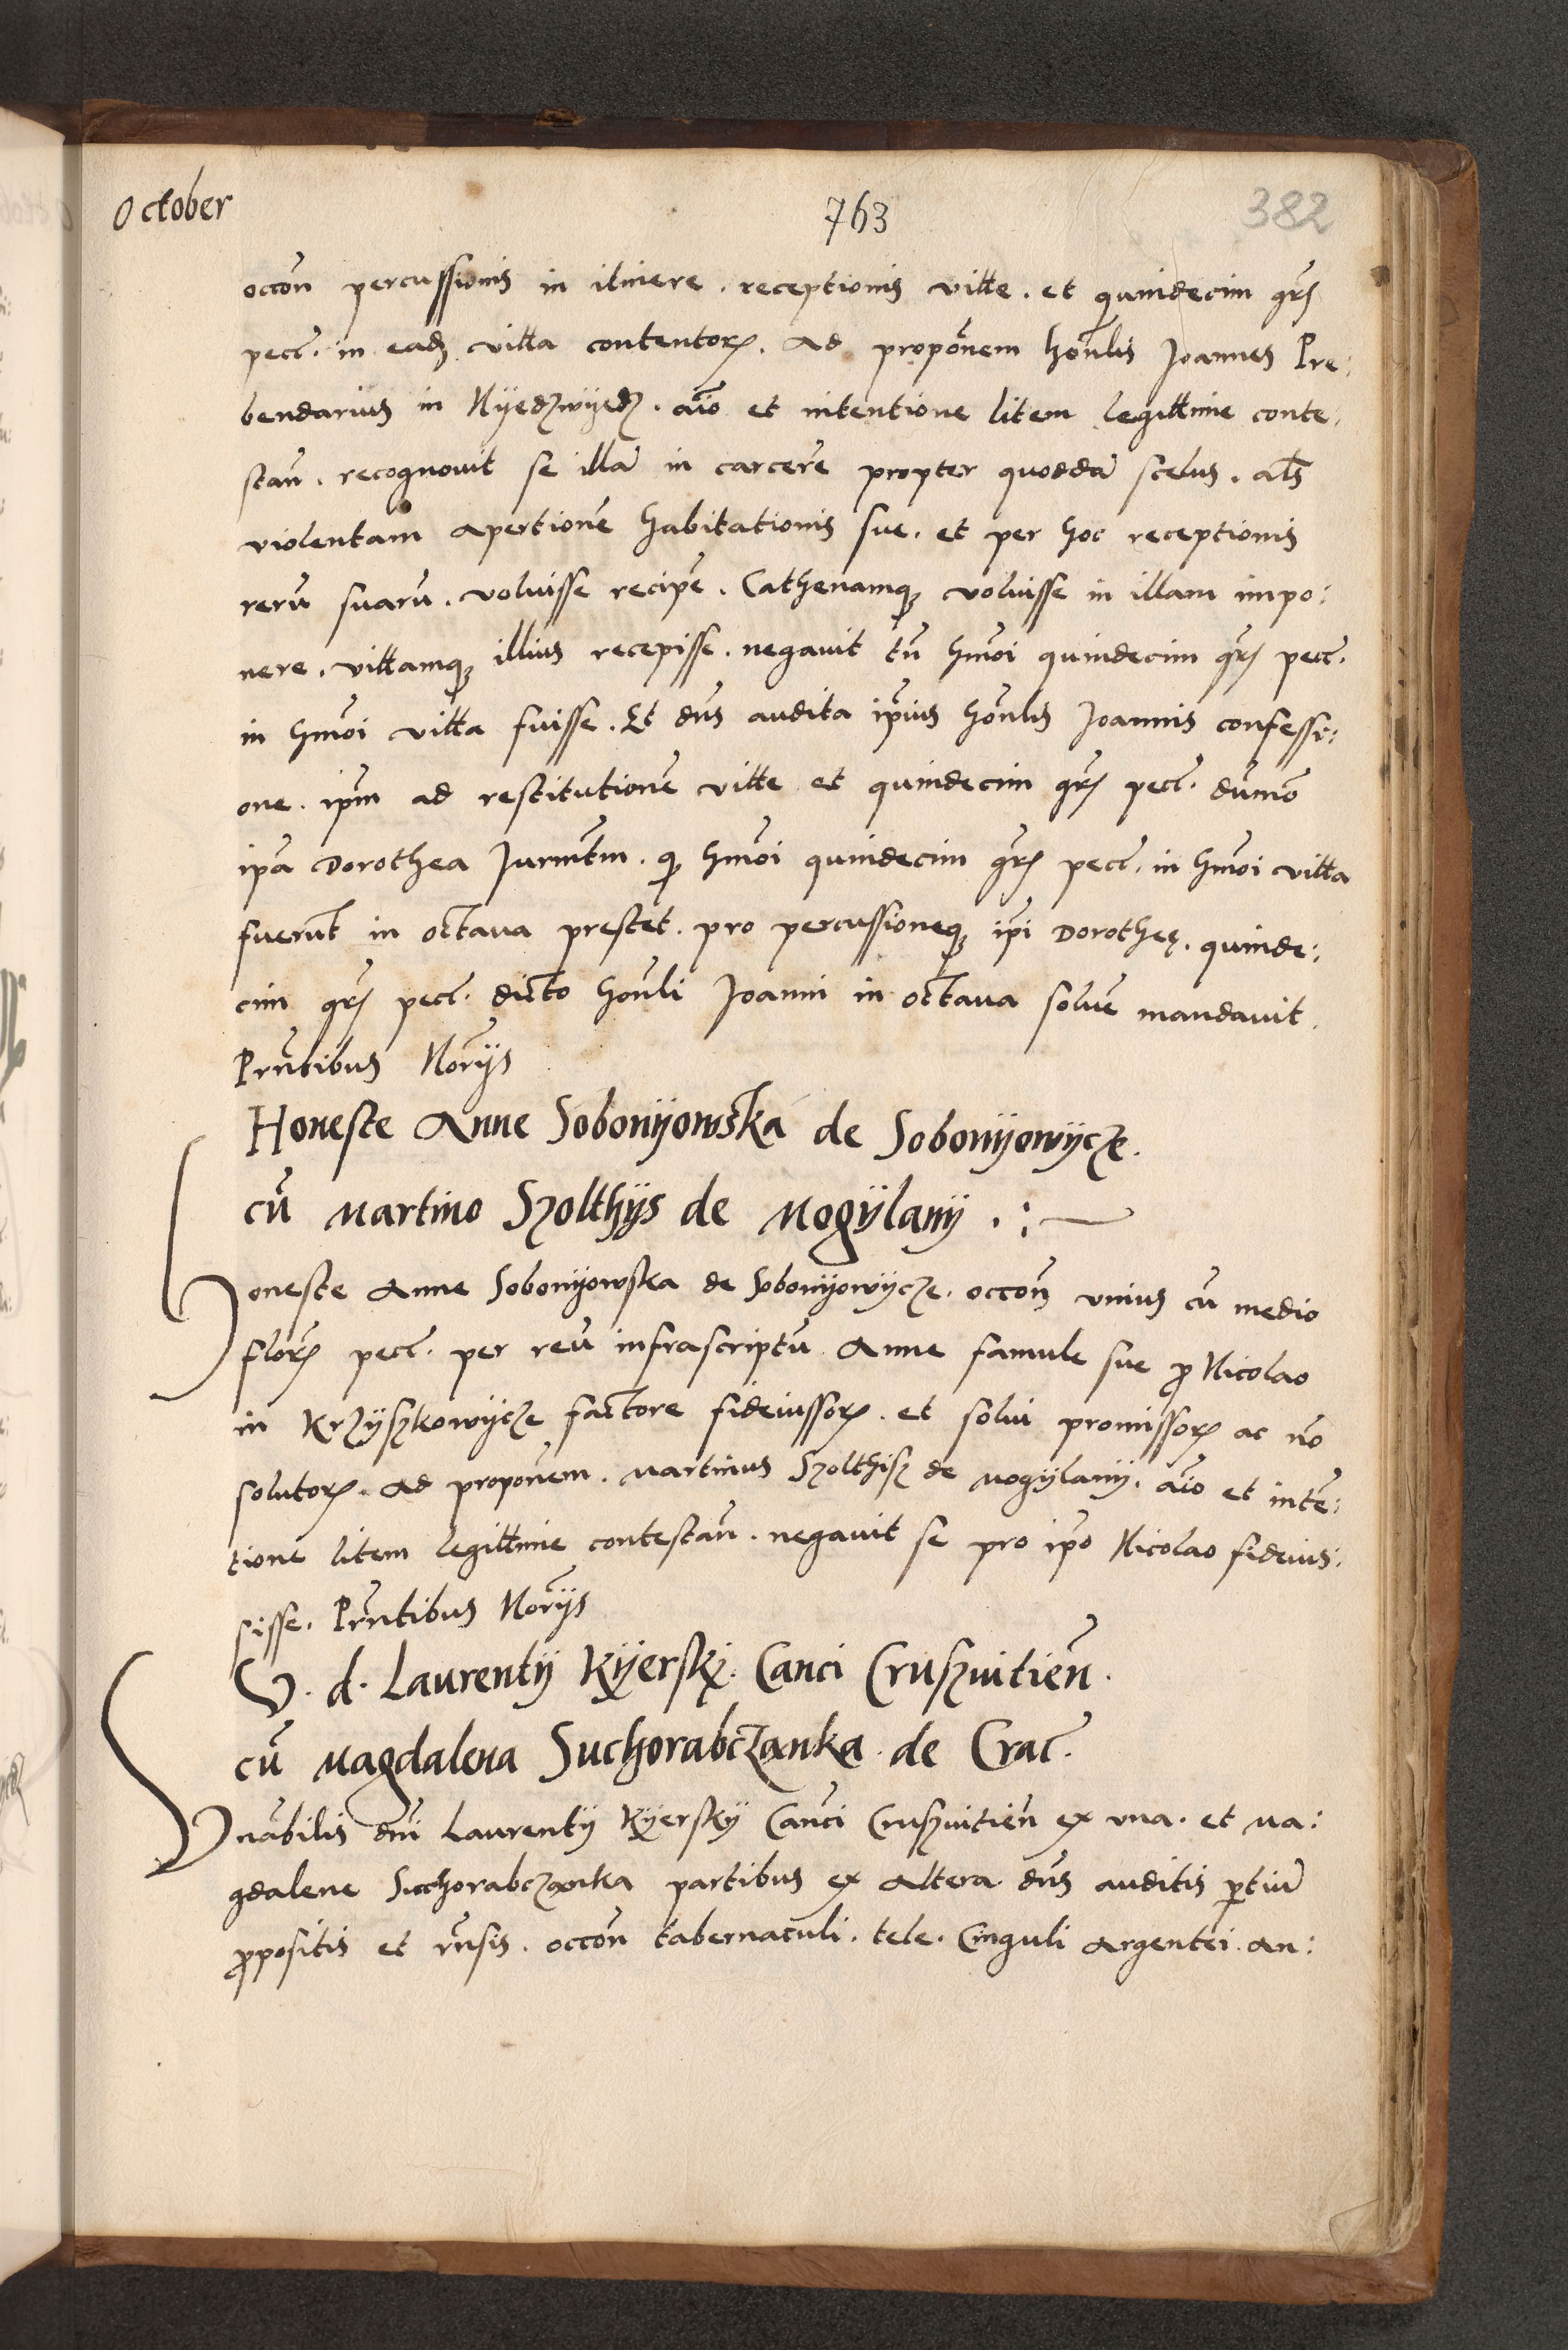 October
763
382
occōn percussionis in itinere . receptionis vitte . et quindecim gr̄
pecc̄ . in eadꝫ vitta contentoꝝ . Ad propōnem hoñlis Joannes Pre:
bendarius in Nÿedzwÿedz . aīo et intentione litem legittime conte:
stañ . recognouit se illā in carcerē propter quoddā scelus . als̄
violentam apertionē habitationis sue . et per hoc receptionis
rerū suarū . voluisse recipē . Cathenamqꝫ voluisse in illam impo:
nere . vittamqꝫ illius recepisse . negauit tn̄ hmōi quindecim gr̄ pecc̄ .
in hmōi vitta fuisse . Et dn̄s audita ip̄ius hoñlis Joannis confessi:
one . ip̄m ad restitutionē vitte et quindecim gr̄ pecc̄ . dūmō
ip̄a Dorothea Jurm̄tm . qꝫ hmōi quindecim gr̄ pecc̄ . in hmōi vitta
fuerūt in octaua prestet . pro percussioneqꝫ ip̄i Dorotheę . quinde:
cim gr̄ pecc̄ . dicto hoñli Joanni in octaua soluē mandauit .
Prñtibus Norÿs
Honeste Anne Sobonÿowska de Sobonÿowÿcze .
cū Martino Szolthÿs de Mogÿlanÿ . :
Honeste Anne Sobonÿowska de Sobonÿowÿcze . occōn vnius cū medio
floꝝ pecc̄ . per reū infrascriptū Anne famule sue ꝓ Nicolao
in Krzÿszkowÿcze factore fideiussoꝝ . et solui promissoꝝ ac nō
solutoꝝ . Ad propōnem . Martinus Szolthisz de Mogÿlanÿ . aīo et intē:
tione litem legittime contestañ . negauit se pro ip̄o Nicolao fideius:
sisse . Prñtibus Norÿs
V . d . Laurentÿ Kÿerskÿ . Canci Cruszuitieñ .
cū Magdalena Suchorabczanka . de Crac̄ .
Vnābilis dn̄i Laurentÿ Kÿerskÿ Canci Cruszuitieñ ex vna . et Ma:
gdalene Suchorabczanka partibus ex altera dn̄s auditis ꝑtiū
ꝓpositis et rn̄sis . occōn tabernaculi . tele . Cinguli argentei . an: